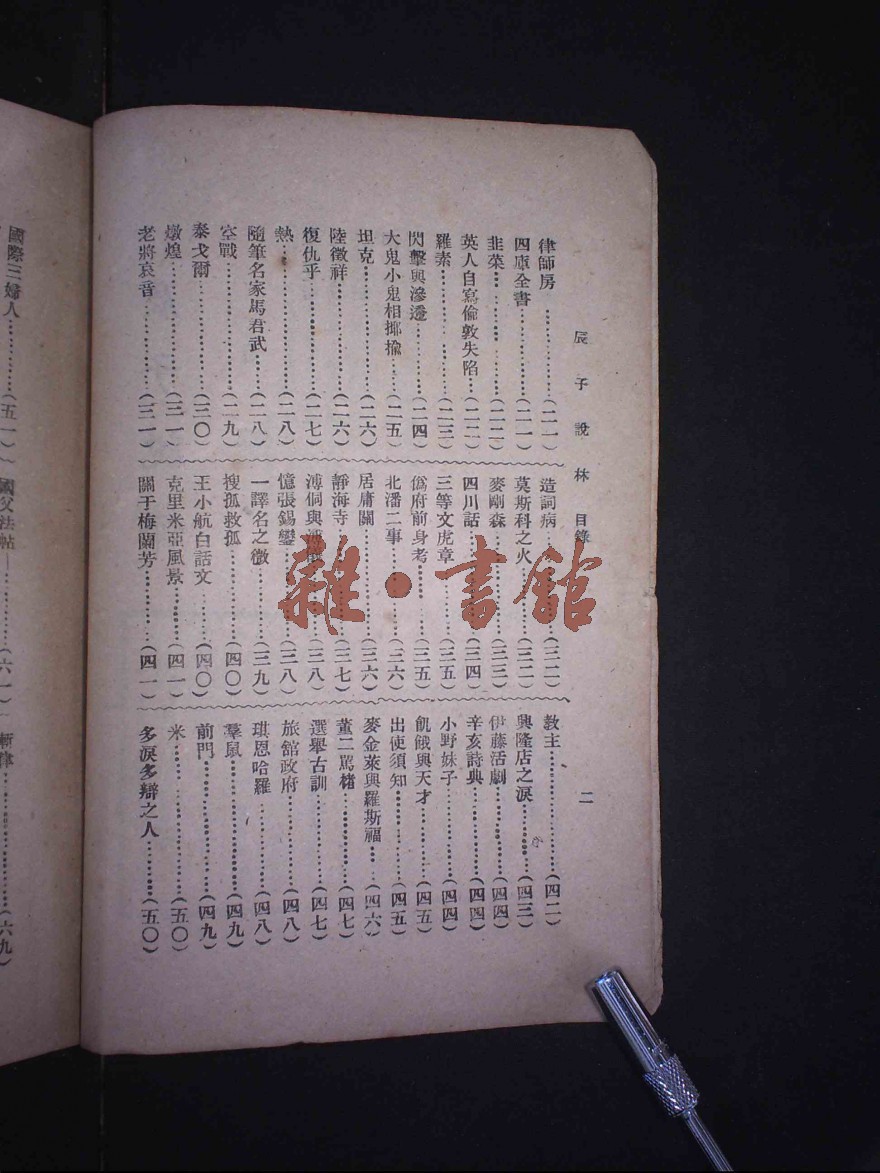 辰子說林 目錄 二
律師房…………(二一)
四庫全書…………(二一)
韭菜…………(二二)
英人自寫倫敦失陷…(二二)
羅素…………(二三)
閃擊與滲透…………(二四)
大鬼小鬼相揶揄……(二五)
坦克…………(二六)
陸徵祥…………(二六)
復仇乎…………(二七)
熱…………(二八)
隨筆名家馬君武……(二八)
空戰…………(二九)
泰戈爾…………(三〇)
燉煌…………(三一)
老將哀音…………(三一)
造詞病…………(三二)
莫斯科之火…………(三二)
麥剛森…………(三三)
四川話…………(三四)
三等文虎章…………(三五)
僞府前身考…………(三五)
北潘二事…………(三六)
居庸關…………(三六)
靜海寺…………(三七)
溥侗與…………(三八)
憶張錫鑾…………(三八)
一譯名之微…………(三九)
搜孤救孤…………(四〇)
王小航白話文……(四〇)
克里米亞風景……(四一)
關于梅蘭芳…………(四一)
教主…………(四二)
興隆店之淚…………(四三)
伊藤活劇…………(四四)
辛亥詩典…………(四四)
小野妹子…………(四四)
飢餓與天才…………(四五)
出使須知…………(四五)
麥金萊與羅斯福…(四六)
董二罵楮…………(四七)
選舉古訓…………(四七)
旅舘政府…………(四八)
琪恩哈羅…………(四八)
羣鼠…………(四九)
前門…………(四九)
米…………(五〇)
多淚多辯之人……(五〇)
國際三婦人…………(五一)
國父法帖…………(六一)
…………(六九)
雜·書館